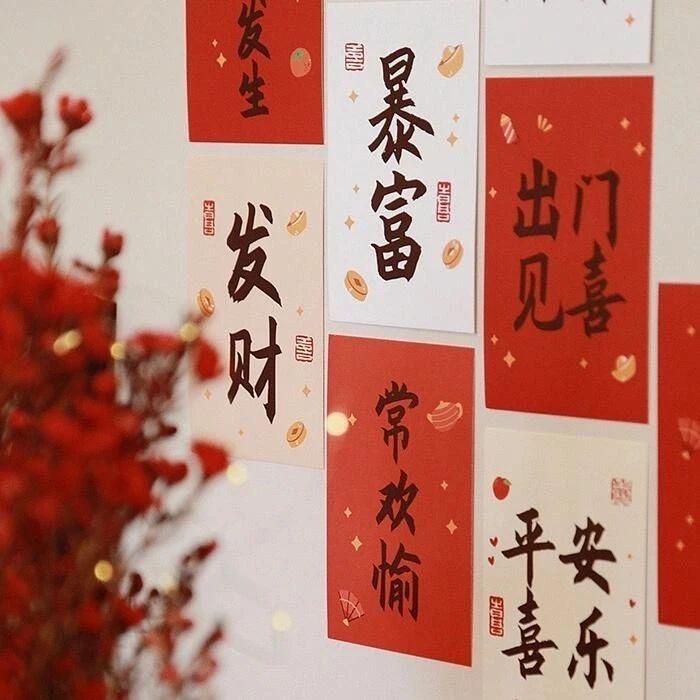 发生
暴富
出门
见喜
发财
常欢愉
平安
喜乐